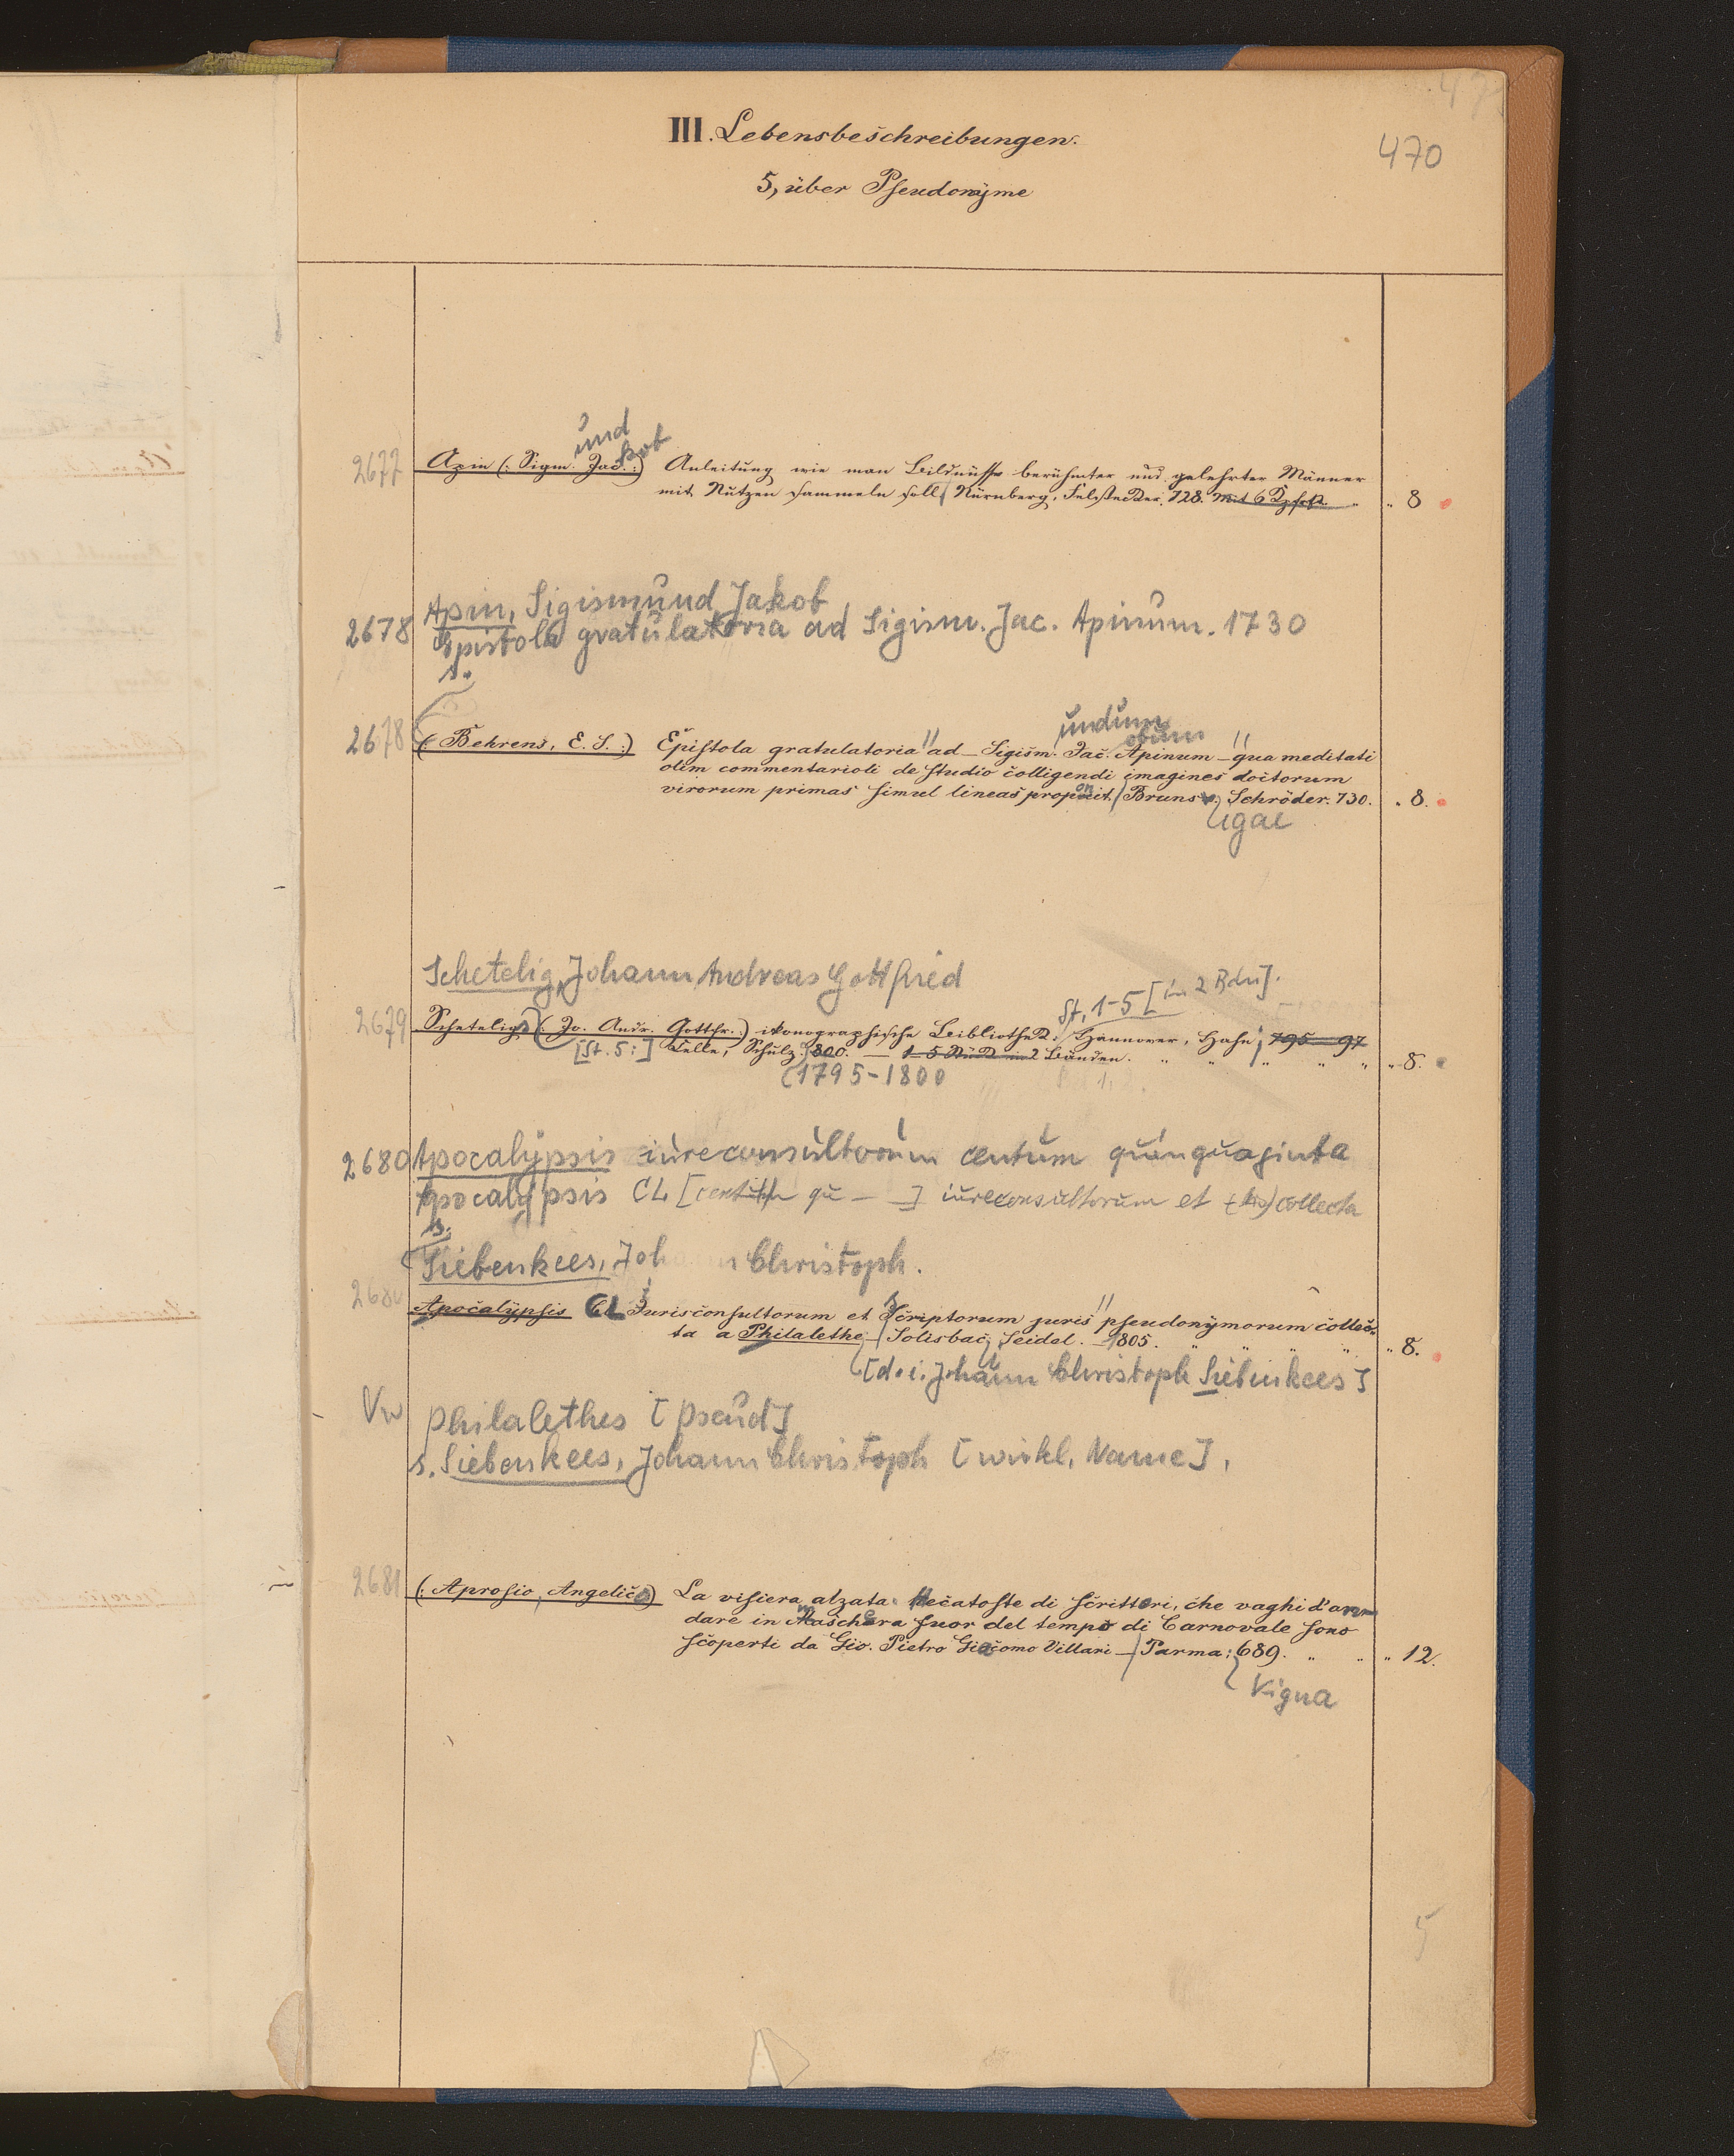 470
III. Lebensbeschreibungen.
5, über Pseudonÿme
und
kob
2677 Apin (: Sigm. Jac. :) Anleitung wie man Bildnüsse berühmter und gelehrter Männer
mit Nutzen sammeln soll / Nürnberg, Felsecker. 728. mit 6 Kpfrn. „ 8
Apin, Sigismund Jakob
2678 Epistola gratulatoria ad Sigism. Jac. Apinum. 1730
s.
undum
obum
2678 (: Behrens, E. S. :) Epistola gratulatoria ad Sigism. Jac. Apinum – qua meditati
olim commentarioli de studio colligendi imagines doctorum
virorum primas simul lineas proponit. / Brunsv. Schröder. 730. „ 8.
igae
Schetelig, Johann Andreas Gottfried
St. 1-5 [in 2 Bdn].
2679 Scheteligs (: Jo. Andr. Gottfr. :) ikonographische Bibliothek. Hannover, Hahn; 795–97
[St. 5:] Celle, Schulz. 800. — 1–5 Stück in 2 Bänden. „ „ „ „ „ „ 8.
(1795-1800
2680 Apocalypsis iureconsultorum centum quinquaginta
Apocalypsis CL [centum qu – ] iureconsultorum et collecta
s.
Siebenkees, Joh n Christoph.
2680 Apocalÿpsis CL Jurisconsultorum et Scriptorum juris pseudonÿmorum collec-
ta a Philalethe / Solisbac, Seidel. 1805. „ „ „ „ „ 8.
[d. i. Johann Christoph Siebenkees]
Vw Philalethes [Pseud]
s. Siebenkees, Johann Christoph [wirkl. Name].
2681 (: Aprosio, Angelico) La visiera alzata. Hecatoste di scrittori, che vaghi d'an-
dare in Maschera fuor del tempo di Carnovale sono
scoperti da Gio. Pietro Giacomo Villari – / Parma: 689. „ „ „ 12.
Vigna
5